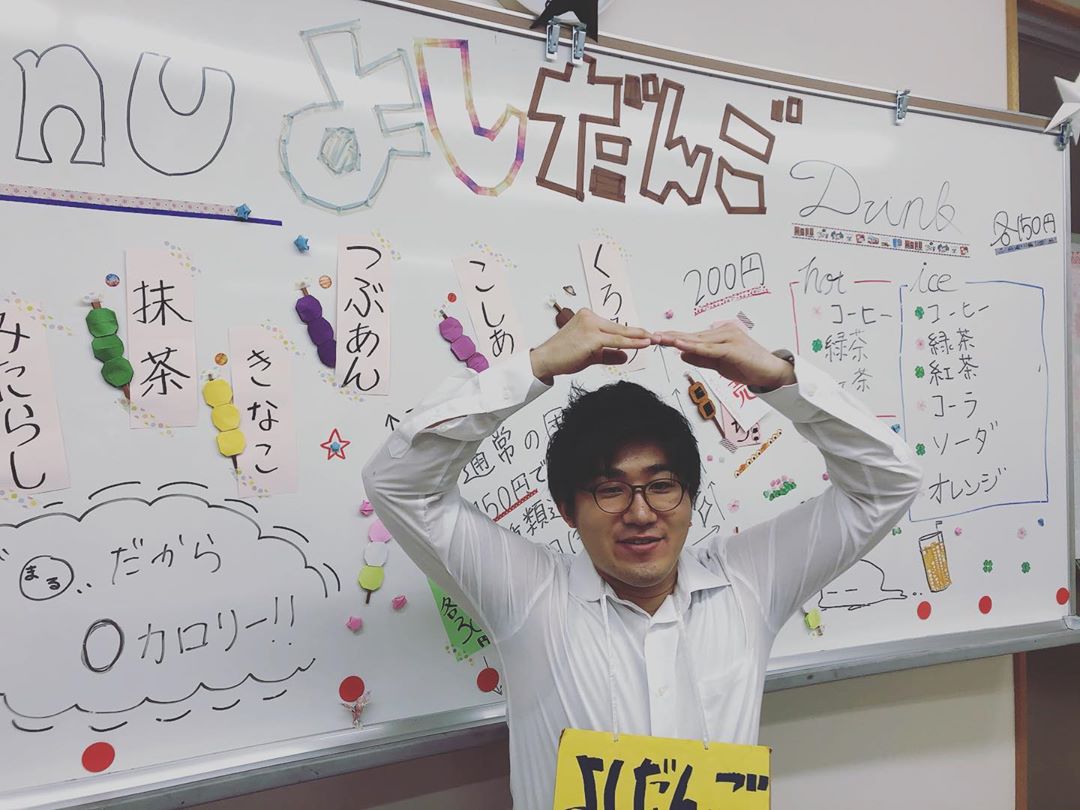 nu よしだんご
Drink
各150円
みたらし
抹茶
きなこ
つぶあん
こしあ
くろ
200円
hot
コーヒー
緑茶
茶
ice
コーヒー
緑茶
紅茶
コーラ
ソーダ
オレンジ
通常の
150円で
種類
売
各
まる
だから
0カロリー!!
よしだんご